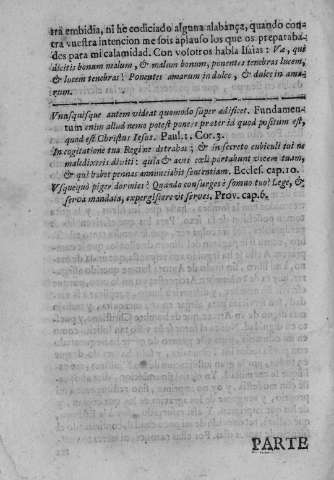 tra embidia, ni he codiciado alguna alabãça, quando con-
tra vuestra intencion me sois aplauso los que os preparaba-
des para mi calamidad. Con vosotros habla Isaias: Væ, qui
dicitis bonum malum, & malum bonum, ponentes tenebras lucem,
& lucem tenebras! Ponentes amarum in dulce, & dulce in ama-
rum.
Vnusquisque autem videat quomodo super ædificet. Fundamen-
tum enim aliud nemo potest ponere præter id quod positum est,
quod est Christus Iesus. Paul. 1. Cor. 3.
In cogitatione tua Regi ne detrahas; & in secreto cubiculi tui ne
maledixeris diviti: quia & aves cœli portabunt vocem tuam,
& qui habet pennas annunciabit sententiam. Eccles. cap. 10.
Vsquequò piger dormies? Quando consurges è somno tuo? Lege, &
serva mandata, expergiscere ut serves. Prov. cap. 6.
PARTE